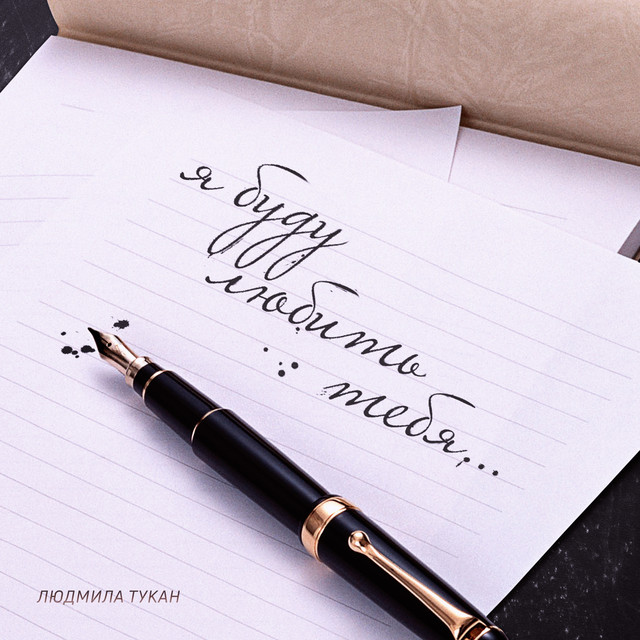 я буду
любить
тебя,...
ЛЮДМИЛА ТУКАН